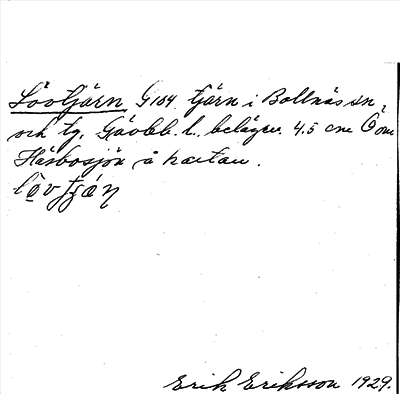 Lövtjärn, G104. tjärn i Bollnäs sn,
och tg, Gävleb. l., belägen 4.5 cm Ö om
Häsbosjön å kartan.
lövtjáɳ
Erik Eriksson 1929.